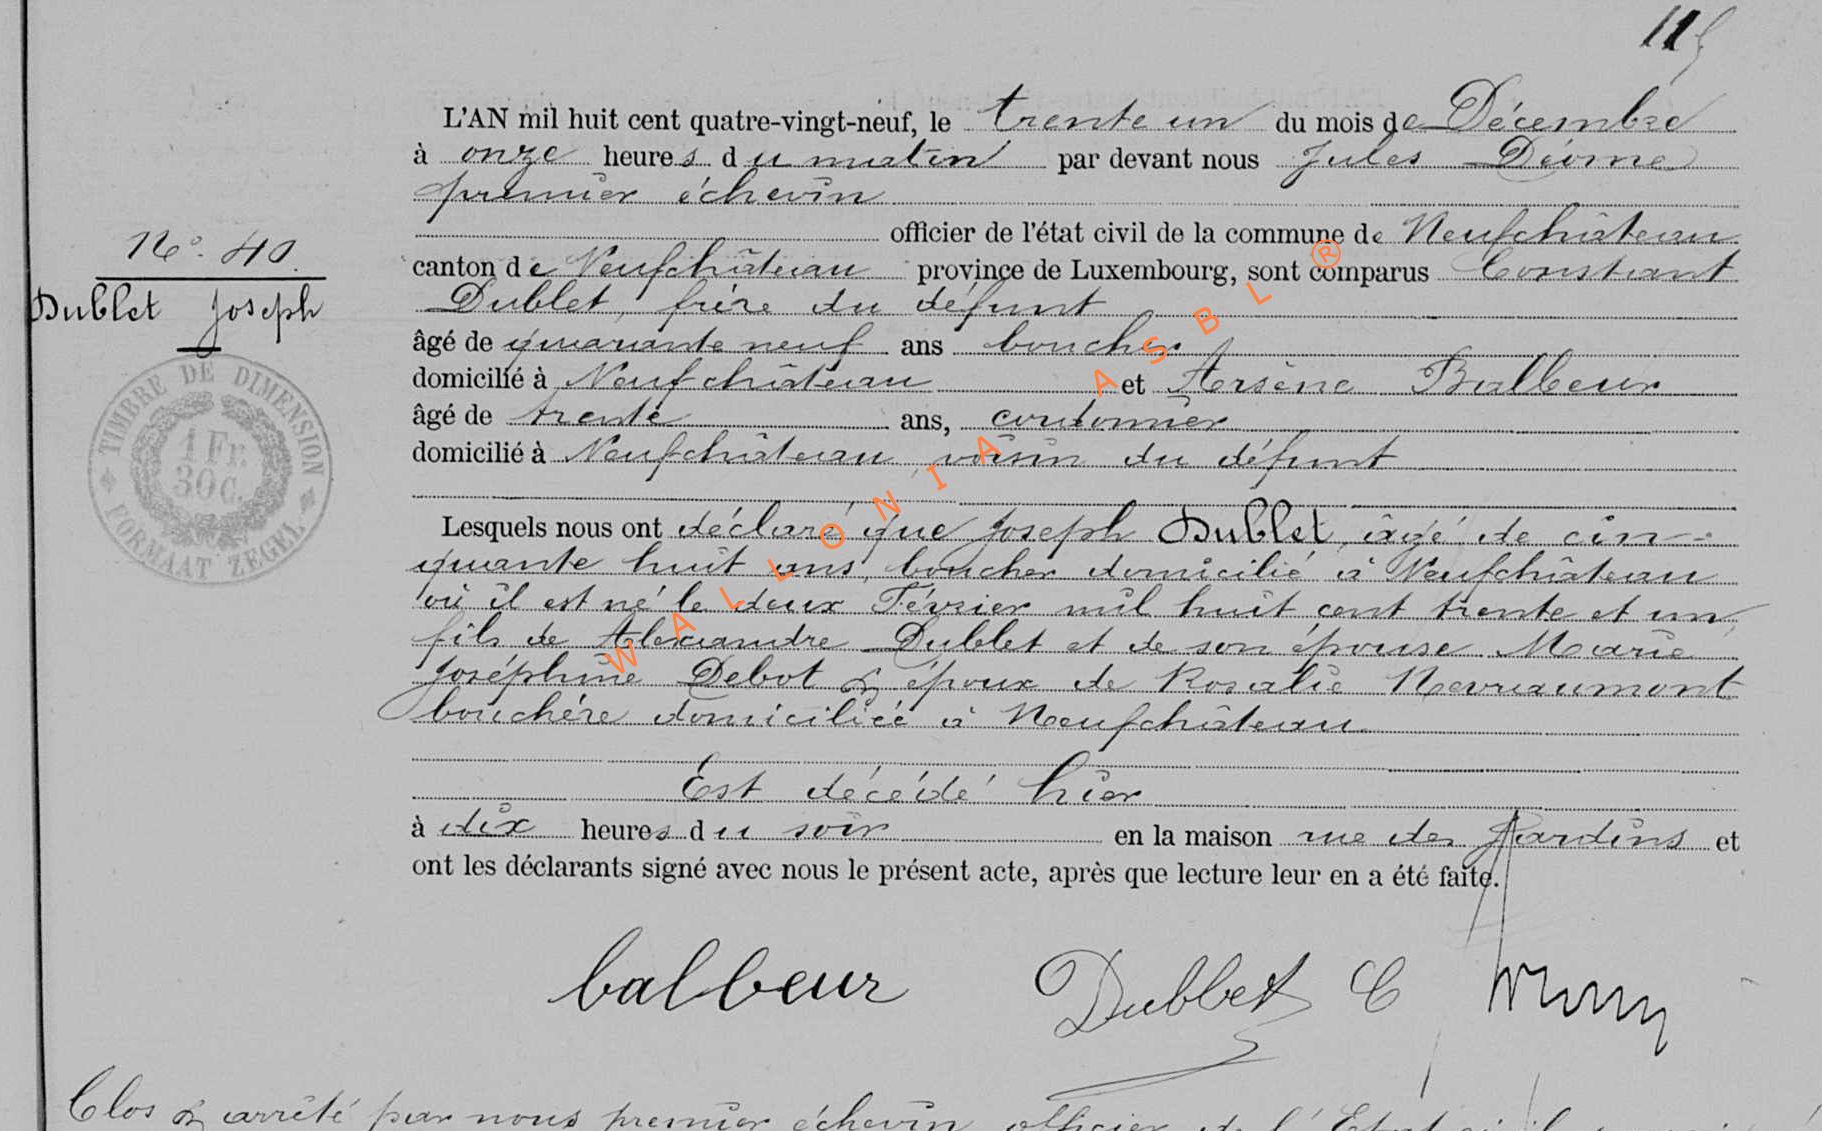 115
L'AN mil huit cent quatre-vingt-neuf, le trente un du mois de Décembre
à onze heures du matin par devant nous Jules Dèome
premier échevin
officier de l'état civil de la commune de Neufchâteau
canton de Neufchâteau province de Luxembourg, sont comparus Constant
Dublet, frère du défunt
âgé de quarante neuf ans boucher
domicilié à Neufchâteau et Arsène Balbeur
âgé de trente ans, cordonnier
domicilié à Neufchâteau, voisin du défunt
No. 40.
Dublet Joseph
TIMBRE DE DIMENSION
1 Fr.
30 C.
FORMAAT ZEGEL
Lesquels nous ont déclaré que Joseph Dublet, âgé de cin-
quante huit ans, boucher domicilié à Neufchâteau
où il est né le deux Février mil huit cent trente et un,
fils de Alexandre Dublet et de son épouse Marie
Joséphine Debot & époux de Rosalie Nevraumont
bouchère domiciliée à Neufchâteau.
Est décédé hier
à dix heures du soir en la maison rue des Jardins et
ont les déclarants signé avec nous le présent acte, après que lecture leur en a été faite.
balbeur Dublet C
Clos & arrêté par nous premier échevin officier de l'Etat civil
WALLONIA ASBL ®